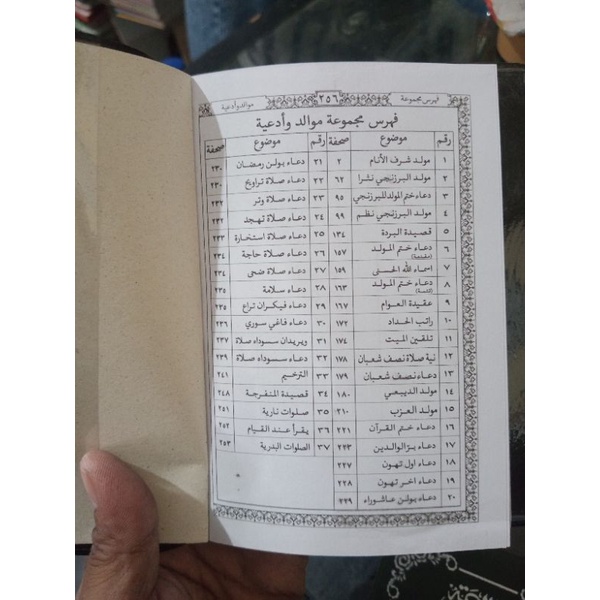 فهرس مجموعة ٢٥٦ موالد وأدعية
فهرس مجموعة موالد وأدعية
رقم موضوع صحفة رقم موضوع صحفة
١ مولد شرف الأنام ٢ ٢١ دعاء بولن رمضان ٢٣٠
٢ مولد البرزنجي نثرا ٦٢ ٢٢ دعاء صلاة تراويح ٢٣٠
٣ دعاء ختم المولد للبرزنجي ٩٥ ٢٣ دعاء صلاة وتر ٢٣٢
٤ مولد البرزنجي نظم ٩٩ ٢٤ دعاء صلاة تهجد ٢٣٢
٥ قصيدة البردة ١٣٤ ٢٥ دعاء صلاة استخارة ٢٣٣
٦ دعاء ختم المولد ١٥٧ ٢٦ دعاء صلاة حاجة ٢٣٤
٧ اسماء الله الحسنى ١٥٩ ٢٧ دعاء صلاة ضحى ٢٣٤
٨ دعاء ختم المولد ١٦٣ ٢٨ دعاء سلامة ٢٣٥
٩ عقيدة العوام ١٦٧ ٢٩ دعاء فيكران تراغ ٢٣٥
١٠ راتب الحداد ١٧٢ ٣٠ دعاء فاغي سوري ٢٣٦
١١ تلقين الميت ١٧٤ ٣١ ويريدان سسوداه صلاة ٢٣٧
١٢ نية صلاة نصف شعبان ١٧٨ ٣٢ دعاء سسوداه صلاة ٢٣٩
١٣ دعاء نصف شعبان ١٧٩ ٣٣ الترخيم ٢٤١
١٤ مولد الديبعي ١٨٠ ٣٤ قصيدة المنفرجة ٢٤٨
١٥ مولد العزب ٢١٠ ٣٥ صلوات نارية ٢٥١
١٦ دعاء ختم القرآن ٢٢١ ٣٦ يقرأ عند القيام ٢٥٢
١٧ دعاء بر الوالدين ٢٢٣ ٣٧ الصلوات البدرية ٢٥٣
١٨ دعاء اول تهون ٢٢٧
١٩ دعاء اخر تهون ٢٢٨
٢٠ دعاء بولن عاشوراء ٢٢٩